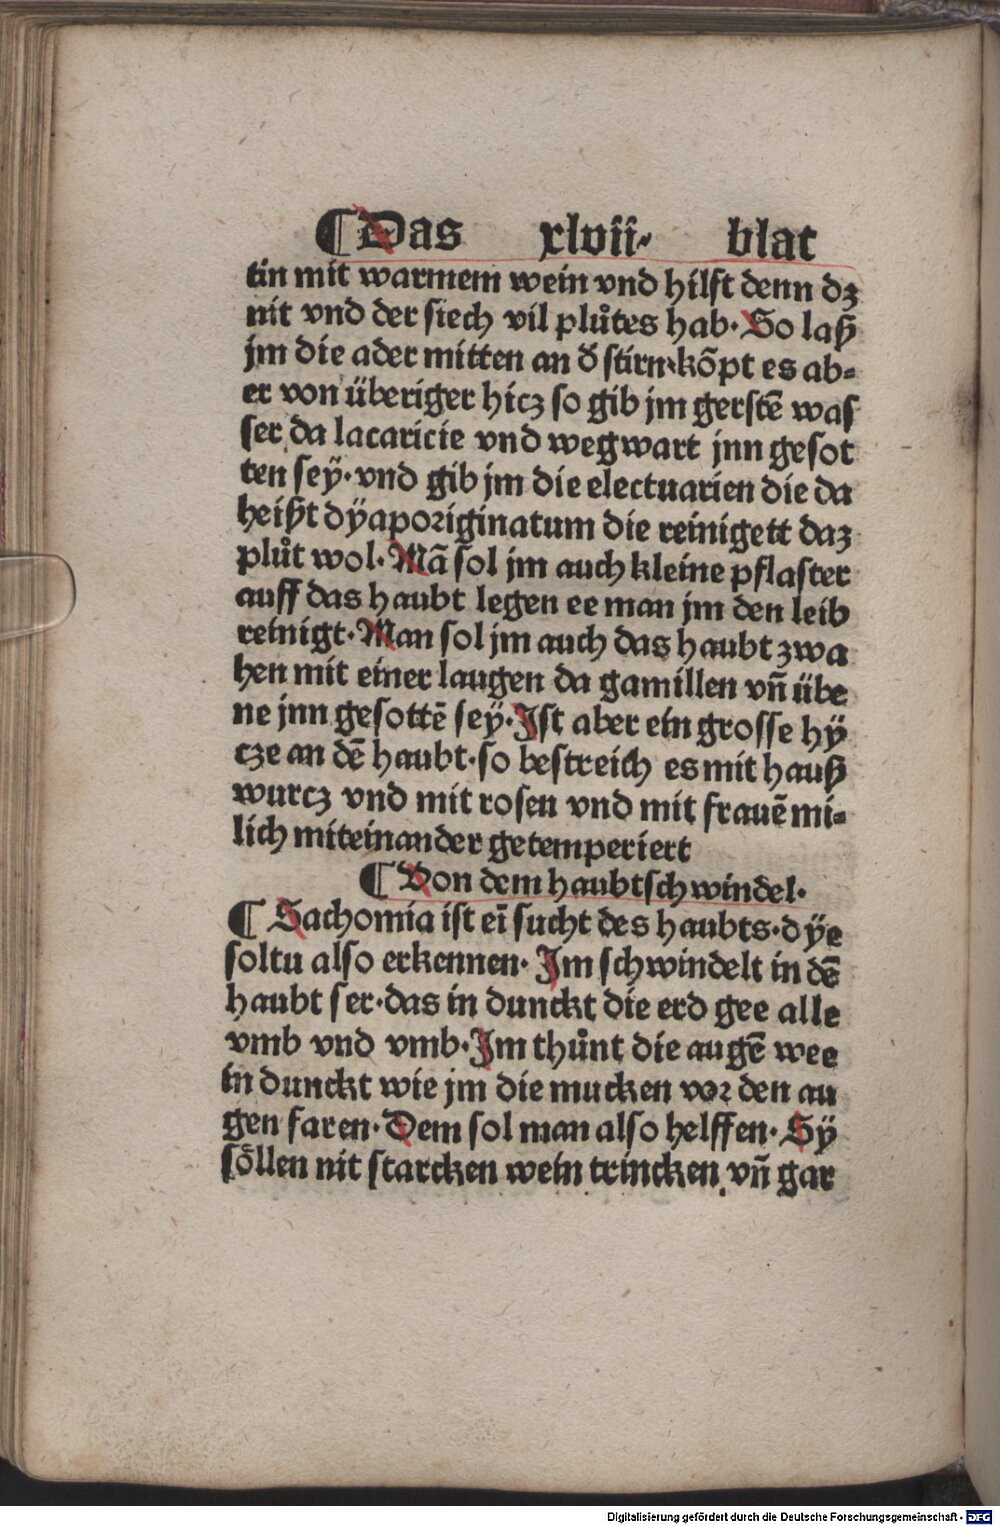 ¶ Das xlvii· blat
tin mit warmem wein vnd hilft denn dz
nit vnd der siech vil plůtes hab· So laß
jm die ader mitten an d̕ stirn·kõpt es ab-
er von überiger hicz so gib jm gerstẽ was
ser da lacaricie vnd wegwart jnn gesot
ten seÿ· vnd gib jm die electuarien die da
heißt dÿaporiginatum die reinigett daz
plůt wol· Mã sol jm auch kleine pflaster
auff das haubt legen ee man jm den leib
reinigt· Man sol jm auch das haubt zwa
hen mit einer laugen da gamillen vñ übe
ne jnn gesottẽ seÿ· Ist aber ein grosse hÿ
cze an dẽ haubt· so bestreich es mit hauß
wurcz vnd mit rosen vnd mit frauẽ mi-
lich miteinander getemperiert
¶ Von dem haubtschwindel·
¶ Sachomia ist eĩ sucht des haubts· dÿe
soltu also erkennen· Im schwindelt in dẽ
haubt ser· das in dunckt die erd gee alle
vmb vnd vmb· Im thůnt die augẽ wee
in dunckt wie jm die mucken vor den au
gen faren· Dem sol man also helffen· Sÿ
soͤllen nit starcken wein trincken vñ gar
Digitalisierung gefördert durch die Deutsche Forschungsgemeinschaft - DFG